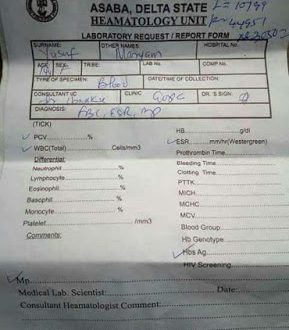 ASABA, DELTA STATE L= 10799
HEAMATOLOGY UNIT
LABORATORY REQUEST / REPORT FORM
SURNAME: OTHER NAMES HOSPITAL No.
Yusuf Maryam
AGE SEX: TRIBE: LAB No. COMP No.
TYPE OF SPECIMEN: Blood DATE/TIME OF COLLECTION
CONSULTANT I/C CLINIC GOPC DR.'S SIGN.
DIAGNOSIS: FBC, ESR, MP
(TICK)
PCV %
WBC(Total) Cells/mm3
Differential:
Neutrophil %
Lymphocyte %
Eosinophil %
Basophil %
Monocyte %
Platelet /mm3
Comments:
HB g/dl
ESR mm/hr(Westergreen)
Prothrombin Time
Bleeding Time
Clotting Time
PTTK
MCH
MCHC
MCV
Blood Group
Hb Genotype
Hbs Ag
HIV Screening
Mp
Medical Lab. Scientist: Date:
Consultant Heamatologist Comment: